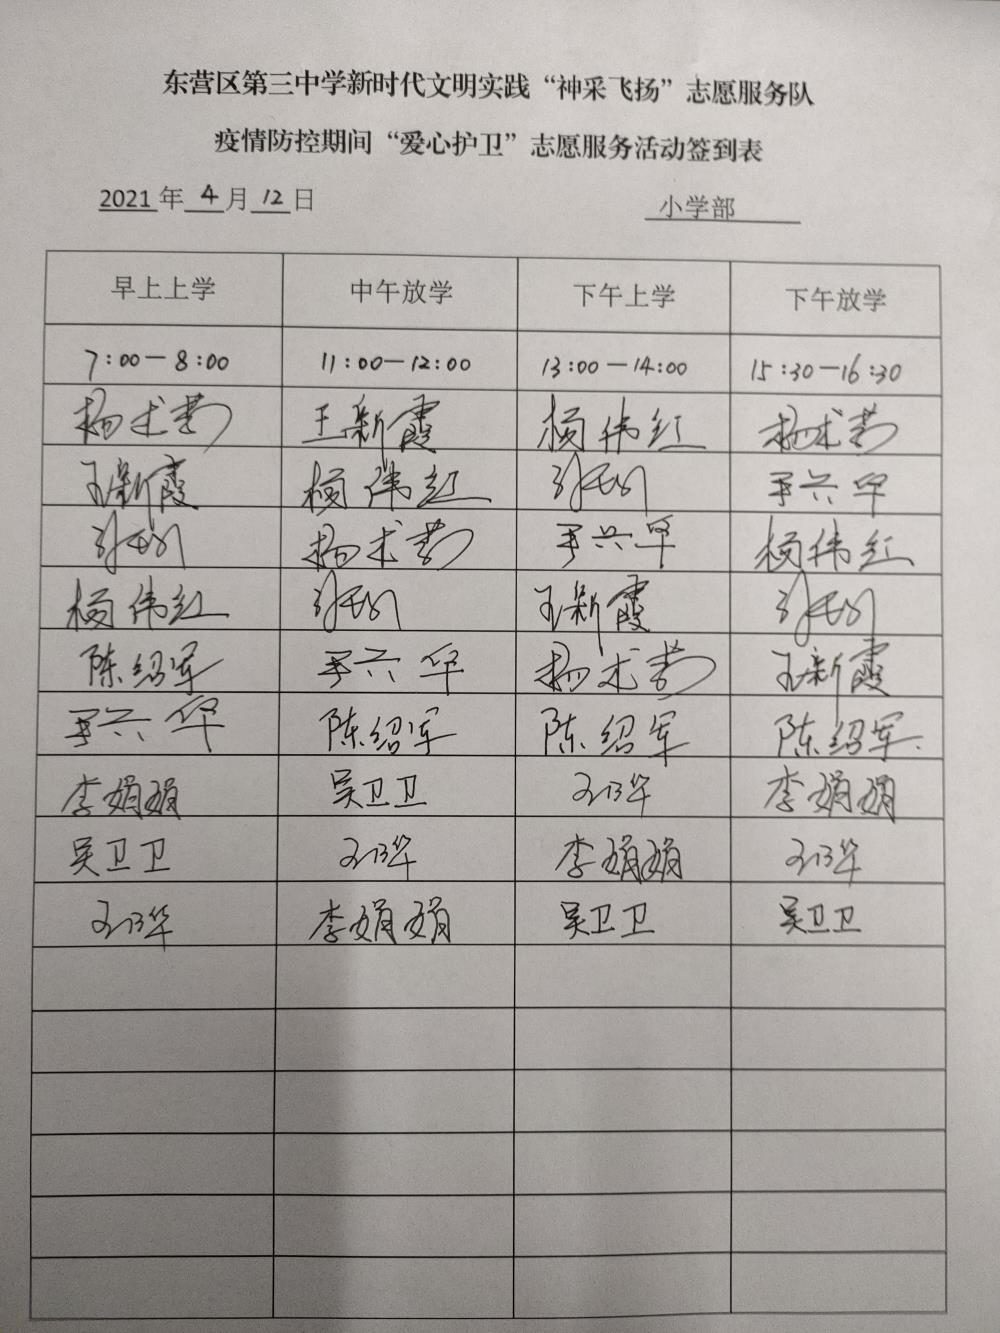 东营区第三中学新时代文明实践“神采飞扬”志愿服务队
疫情防控期间“爱心护卫”志愿服务活动签到表
2021年 4 月 12 日 小学部
早上上学 中午放学 下午上学 下午放学
7:00—8:00 11:00—12:00 13:00—14:00 15:30—16:30
杨术芳 王新霞 杨伟红 杨术芳
王新霞 杨伟红 尹兴华
杨术芳 尹兴华 杨伟红
杨伟红 王新霞
陈绍军 尹兴华 杨术芳 王新霞
尹兴华 陈绍军 陈绍军 陈绍军
李娟娟 吴卫卫 李娟娟
吴卫卫 李娟娟
李娟娟 吴卫卫 吴卫卫